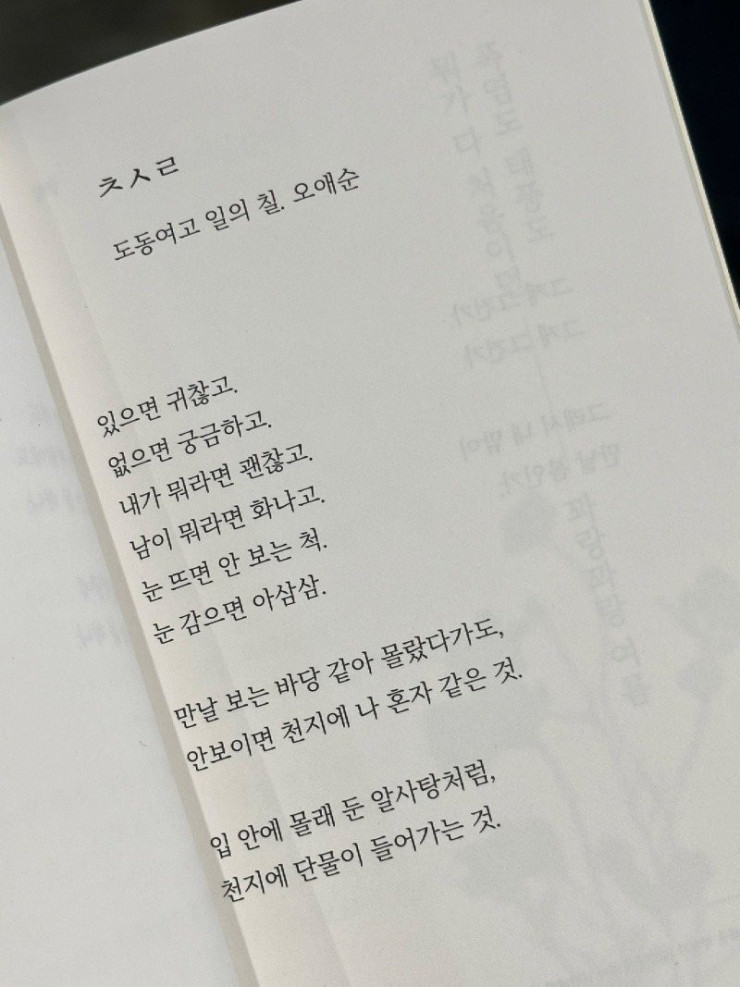 ㅊㅅㄹ
도동여고 일의 칠. 오애순
있으면 귀찮고.
없으면 궁금하고.
내가 뭐라면 괜찮고.
남이 뭐라면 화나고.
눈 뜨면 안 보는 척.
눈 감으면 아삼삼.
만날 보는 바당 같아 몰랐다가도,
안보이면 천지에 나 혼자 같은 것.
입 안에 몰래 둔 알사탕처럼,
천지에 단물이 들어가는 것.